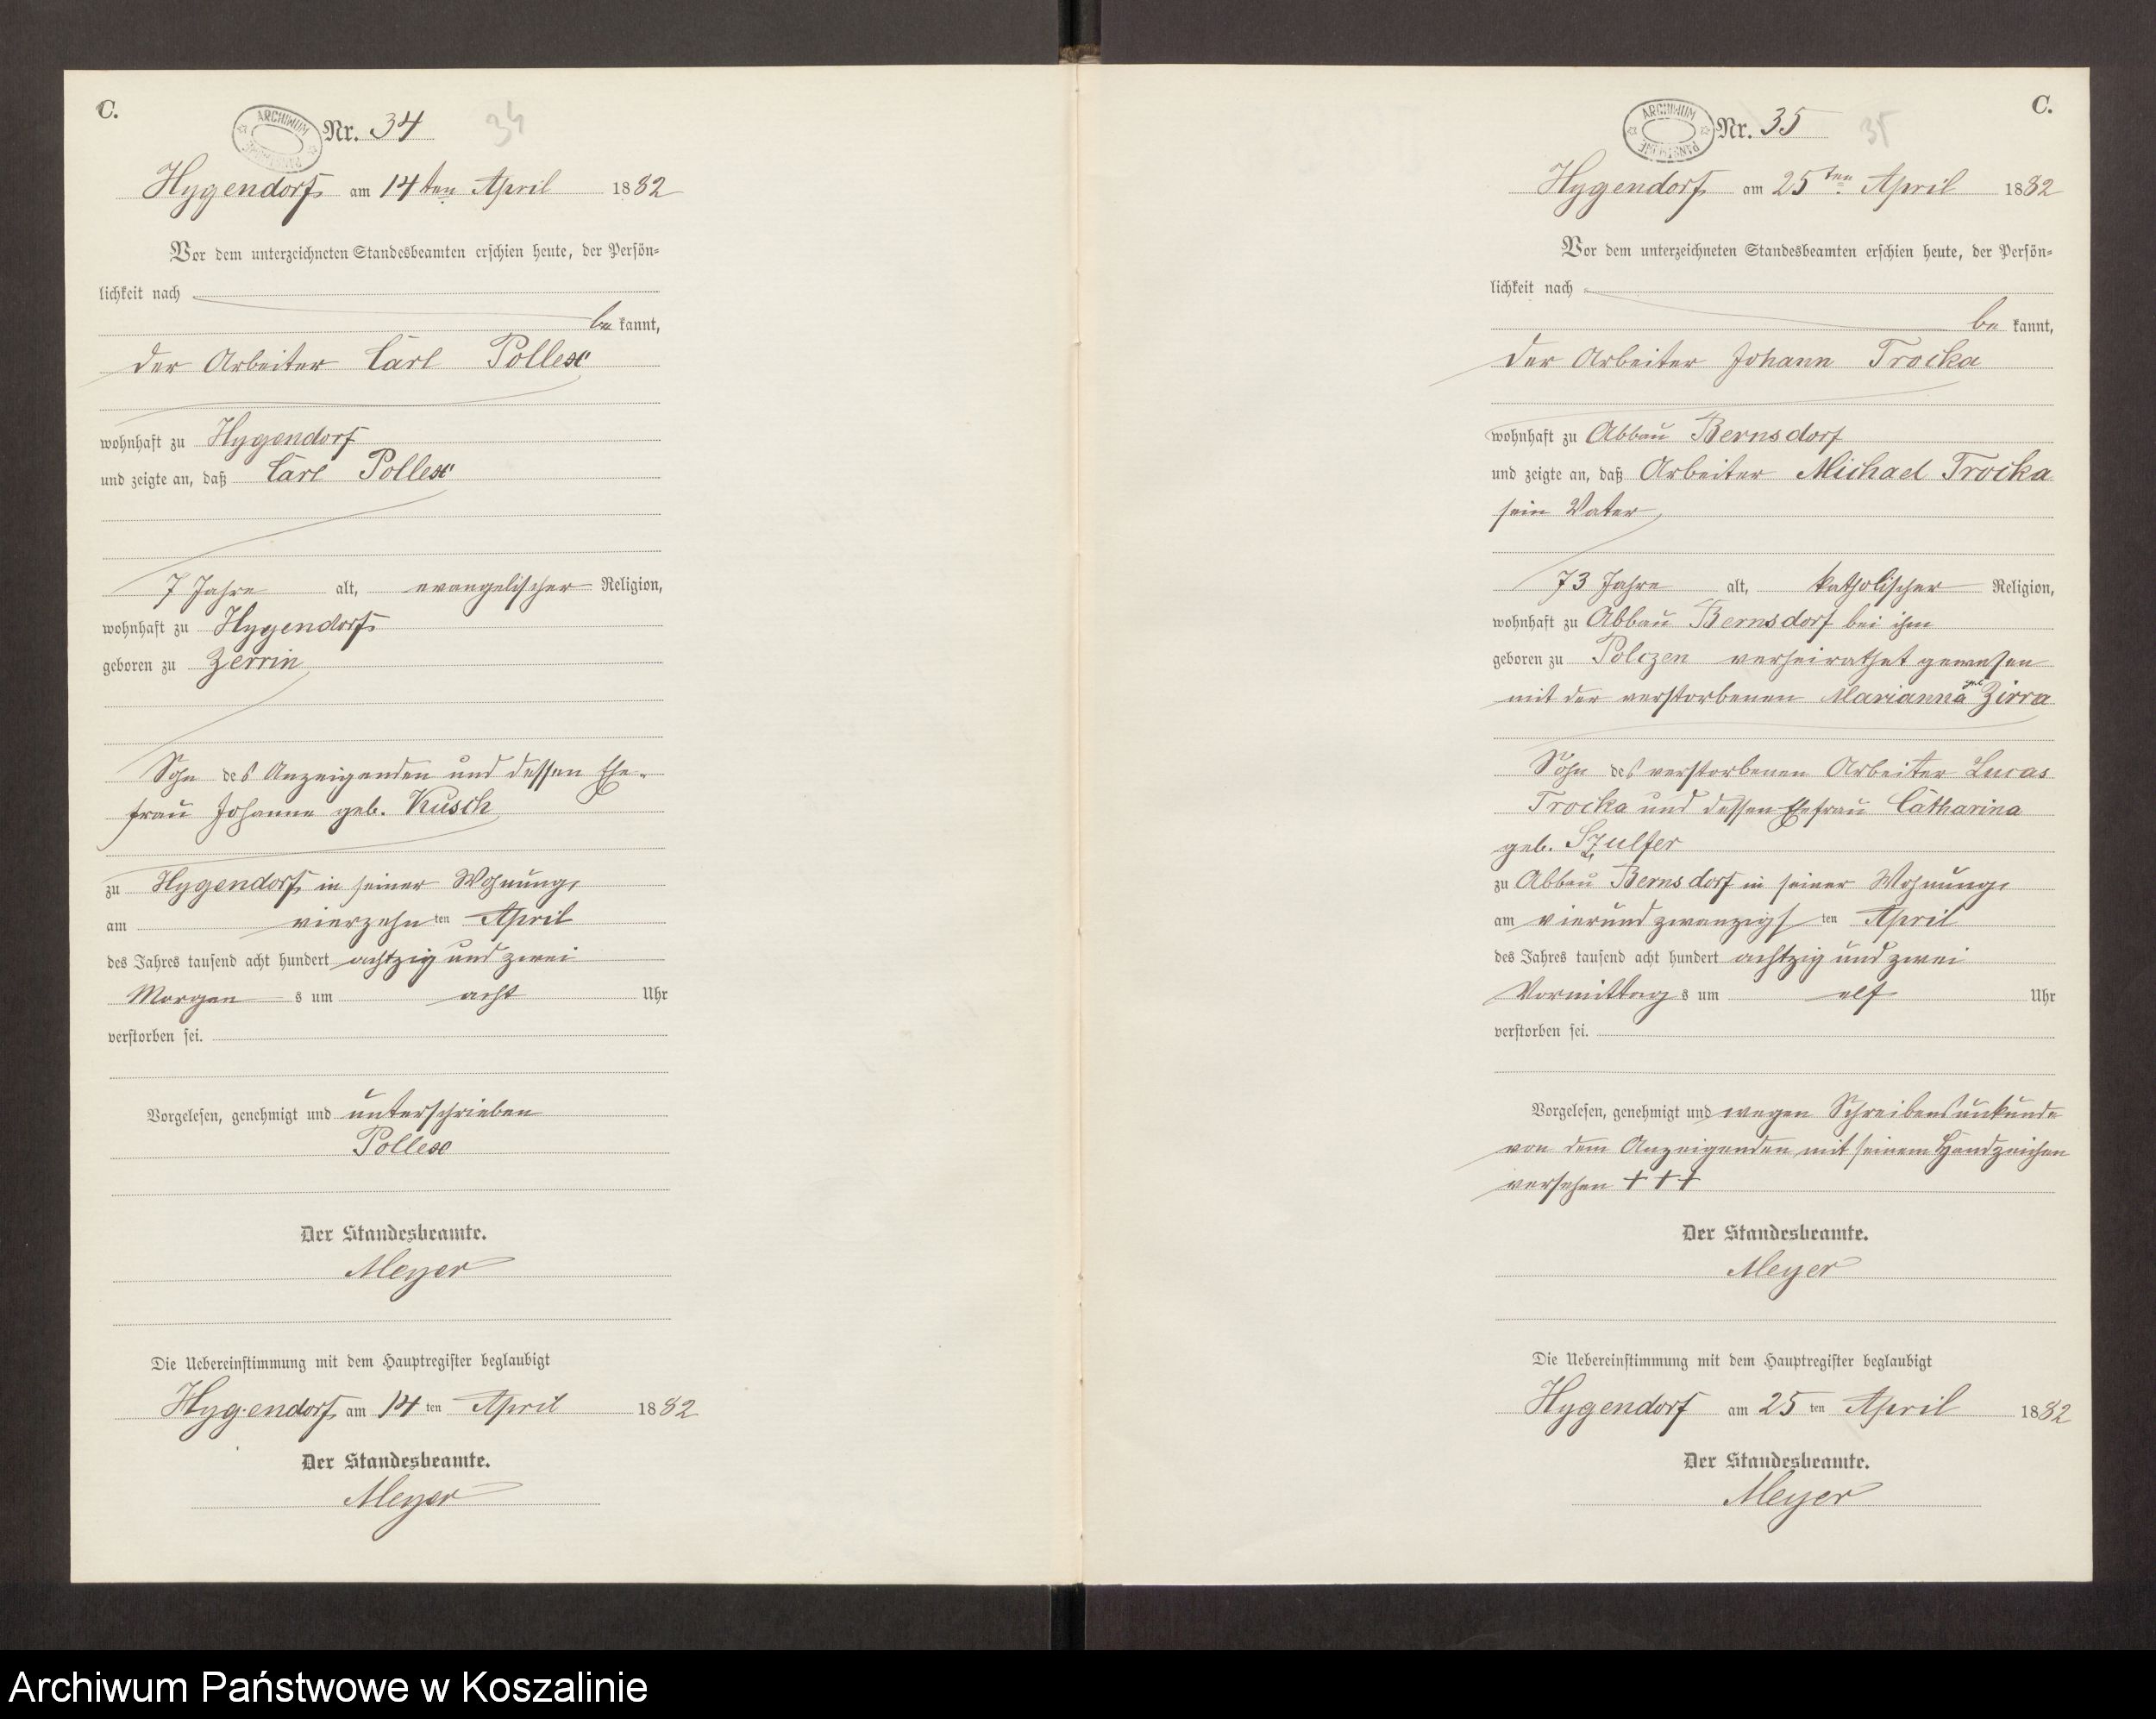 C.
ARCHIWUM PAŃSTWOWE
Nr. 34
34
Hygendorf am 14ten April 1882
Vor dem unterzeichneten Standesbeamten erschien heute, der Persön-
lichkeit nach
be kannt,
der Arbeiter Carl Pollex
wohnhaft zu Hygendorf
und zeigte an, daß Carl Pollex
7 Jahre alt, evangelischer Religion,
wohnhaft zu Hygendorf
geboren zu Zerrin
Sohn des Anzeigenden und dessen Ehe-
frau Johanne geb. Kusch
zu Hygendorf in seiner Wohnung,
am vierzehn ten April
des Jahres tausend acht hundert achtzig und zwei
Morgen s um acht Uhr
verstorben sei.
Vorgelesen, genehmigt und unterschrieben
Pollex
Der Standesbeamte.
Meyer
Die Uebereinstimmung mit dem Hauptregister beglaubigt
Hygendorf am 14 ten April 1882
Der Standesbeamte.
Meyer
C.
ARCHIWUM PAŃSTWOWE
Nr. 35
35
Hygendorf am 25ten April 1882
Vor dem unterzeichneten Standesbeamten erschien heute, der Persön-
lichkeit nach
be kannt,
der Arbeiter Johann Trocka
wohnhaft zu Abbau Bernsdorf
und zeigte an, daß Arbeiter Michael Trocka
sein Vater,
73 Jahre alt, katholischer Religion,
wohnhaft zu Abbau Bernsdorf bei ihm
geboren zu Polczen verheirathet gewesen
mit der verstorbenen Marianna geb Zirra
Sohn des verstorbenen Arbeiter Lucas
Trocka und dessen Ehefrau Catharina
geb. Szulfer
zu Abbau Bernsdorf in seiner Wohnung,
am vierundzwanzigs ten April
des Jahres tausend acht hundert achtzig und zwei
Vormittag s um elf Uhr
verstorben sei.
Vorgelesen, genehmigt und wegen Schreibensunkunde
von dem Anzeigenden mit seinem Handzeichen
versehen + + +
Der Standesbeamte.
Meyer
Die Uebereinstimmung mit dem Hauptregister beglaubigt
Hygendorf am 25 ten April 1882
Der Standesbeamte.
Meyer
Archiwum Państwowe w Koszalinie